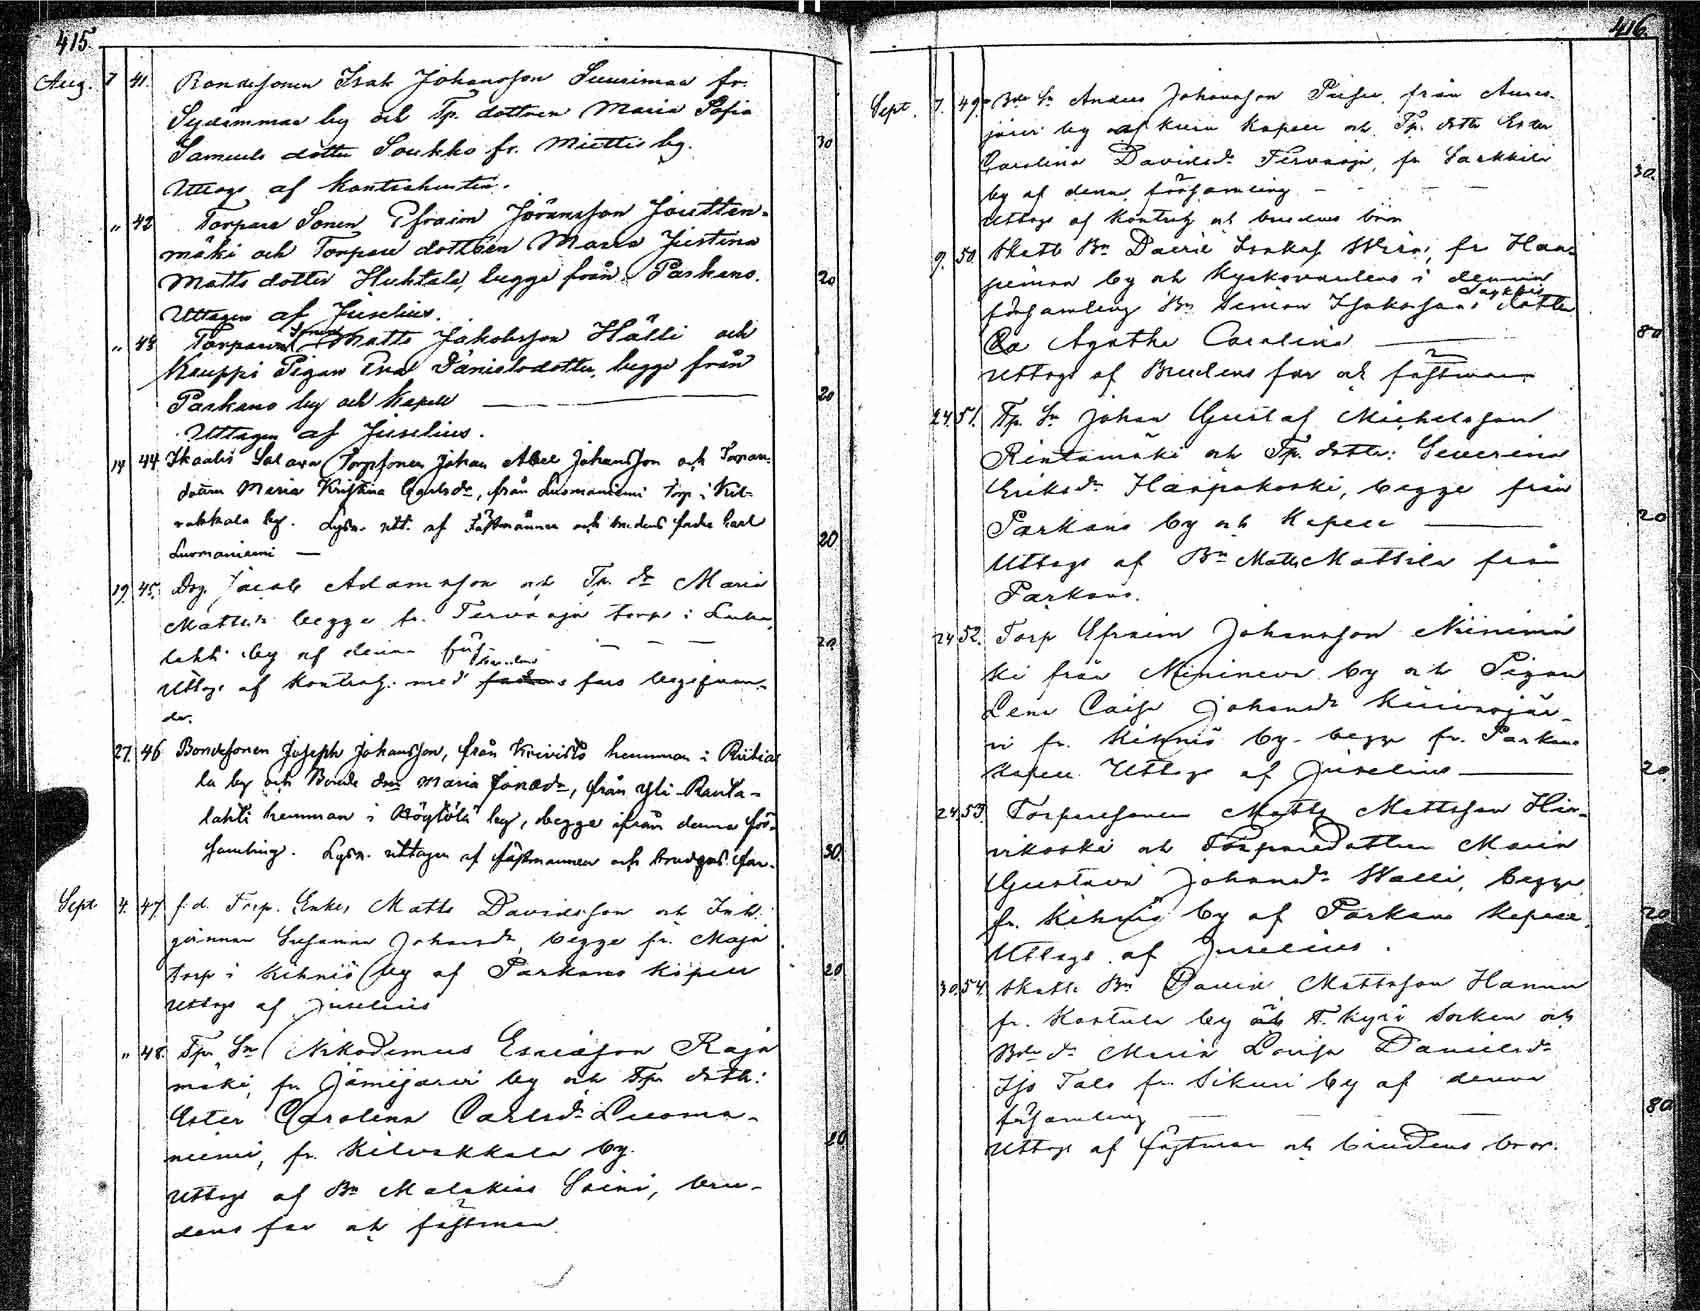 415.
Aug. 7 41. Bondesonen Isak Johansson Suurimaa fr.
Sydänmaa by och Tp. dottren Maria Sofia
Samuels dotter Soukko fr. Miettis by. 30
Uttogs af kontrahenten.
" 42 Torpare Sonen Efraim Jöransson Jouttenmäki
och Torpare dottren Maria Justina
Matts dotter Huhtala, begge från Parkano. 20
Uttagen af Juselius.
" 43 Torpare Sonen Matts Jakobsson Hälli och
Kauppi Pigan Eva Danielsdotter, begge från
Parkano by och Kapell — 20
Uttagen af Juselius.
14 44 Ikaalis Salava Torpsonen Johan Abel Johansson och Torpare
dottren Maria Kristina Carlsdr, från Luomaniemi torp i Kilvakkala
by. Lysn. utt. af Fästmannen och brudens fader Carl
Luomaniemi — 20
19. 45. Drg. Jacob Adamsson och Tp. dr Maria
Mattsdr begge fr. Tervaoja torp i
lahti by af denna förs — — 20
Uttogs af Kontrah. med fars begifvande.
27. 46 Bondesonen Joseph Johansson, från Koivisto hemman i Riitiala
by och Bonde dtren Maria Jonædr, från Yli-Rautalahti
hemman i Röyhiö by, begge ifrån denna församling.
Lysn. uttagen af fästmannen och brudens far. 30.
Sept. 4. 47 f.d. Torp. Enkl. Matts Davidsson och Inh.
qvinnan Susanna Johansdr, begge fr. Maja
torp i Kihniö by af Parkano Kapell 20
Uttogs af Juselius
" 48. Tp. Sn Nikodemus Ericsson Rajamäki,
fr. Jämijärvi by och Tp. dottr:
Ester Carolina Carlsdr Luomaniemi,
fr. Kilvakkala by. 20
Uttogs af Bn Malakias Soini, brudens
far och fästman
416.
Sept. 7. 49. Bde Sn Anders Johansson från
järvi by af Kapell och Tp. dottr Ester
Carolina Davidsdr Tervaoja, fr Sarkkila
by af denna församling — — 30.
Uttogs af Kontrah. och brudens bror
9. 50. Skatte Bn David Isaksson fr Haapimaa
by och Kyrkovärdens i denna
församling Bn Simeon Isakssons dotter
Agatha Carolina — 80
Uttogs af Brudens far och fästman
24. 51. Tp. Sn Johan Gustaf Michelsson
Rintamäki och Tp. dottr: Severina
Eriksdr Haapakoski, begge från
Parkano by och Kapell — 20
Uttogs af Bn Matts Mattila från
Parkano.
24 52. Torp Efraim Johansson Niinimäki
från Niinineva by och Pigan
Lena Caisa Johansdr Kuivasjärvi
fr. Kihniö by begge fr. Parkano
Kapell. Uttogs af Juselius — 20.
24. 53. Torparesonen Matts Mattsson Hirvikoski
och Torparedottren Maria
Gustava Johansdr Walli, begge
fr. Kihniö by af Parkano Kapell. 20
Uttogs af Juselius.
30. 54. Skatte Bn David Mattsson Hannu
fr. Kostula by af T. Kyrö Socken och
Bde dr Maria Lovisa Danielsdr
Iso Talo fr. Sikuri by af denna
församling — — — 80
Uttogs af fästman och brudens bror.